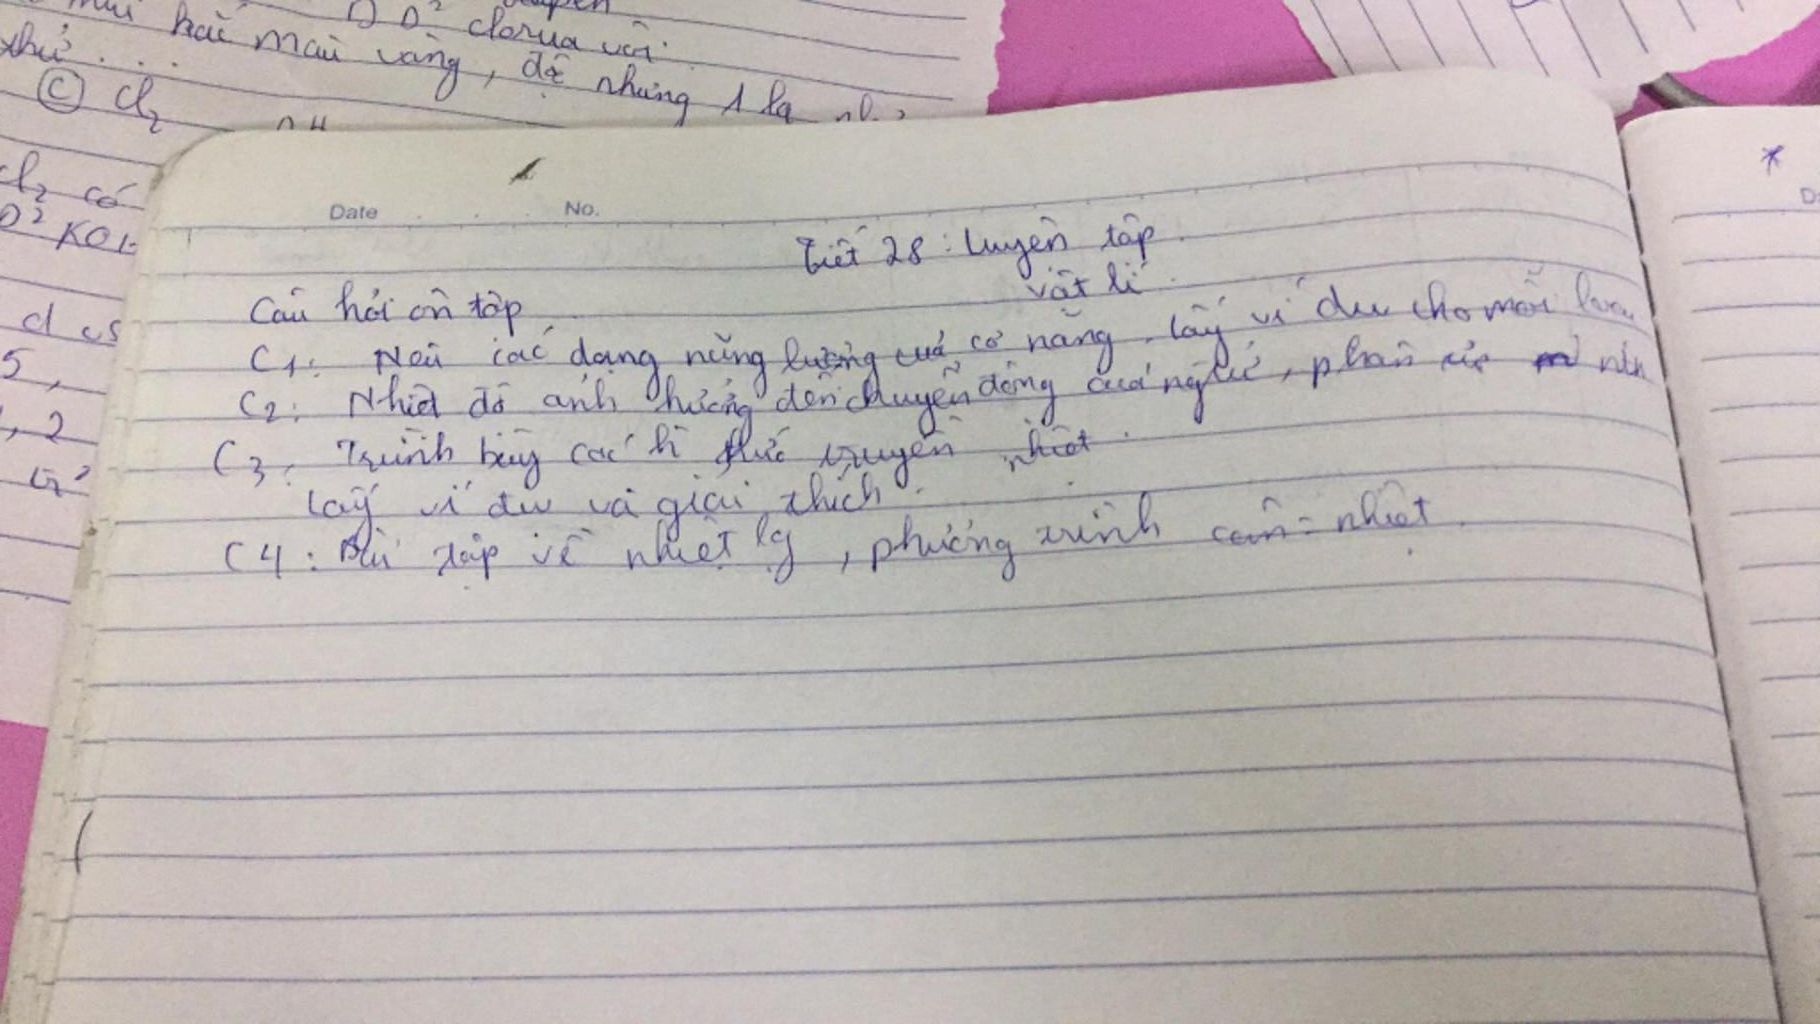 clorua vôi
hắc màu vàng, để nhưng 1 lq
thử...
(C) Cl2
Cl2 có
D² KOH
5,
, 2
Date No.
Tiết 28: Luyện tập
vật lí.
Câu hỏi ôn tập
C1: Nêu các dạng năng lượng của cơ năng. Lấy ví dụ cho mỗi
C2: Nhiệt độ ảnh hưởng đến chuyển động của ngtử, phân tử ntn
C3: Trình bày các h thức truyền nhiệt.
Lấy ví dụ và giải thích.
C4: Bài tập về nhiệt lg, phương trình cân = nhiệt.